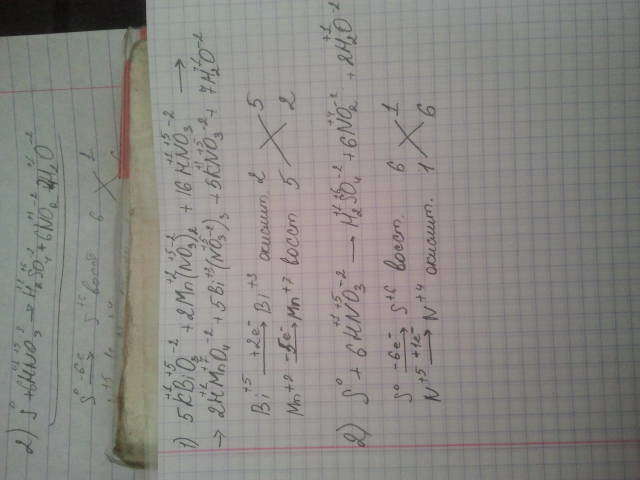 2) S⁰ + 6HNO₃ → H₂SO₄ + 6NO₂ + 2H₂O
S⁰ -6e → S⁺⁶ восст 6 1
1) 5KBiO₃ + 2Mn(NO₃)₂ + 16HNO₃ →
→ 2HMnO₄ + 5Bi(NO₃)₃ + 5KNO₃ + 7H₂O
Bi⁺⁵ +2e⁻ → Bi⁺³ окислит. 2 5
Mn⁺² -5e⁻ → Mn⁺⁷ восст. 5 2
2) S⁰ + 6HNO₃ → H₂SO₄ + 6NO₂ + 2H₂O
S⁰ -6e⁻ → S⁺⁶ восст. 6 1
N⁺⁵ +1e⁻ → N⁺⁴ окислит. 1 6